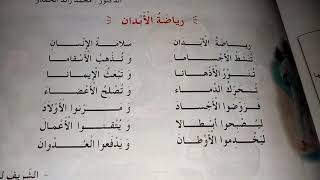 رياضة الأبدان
رياضة الأبدان سلامة الإنسان
تنشط الأجساما و تذهب الأسقاما
تنور الأذهانا و تبعث الإيمانا
تحرك الدماء و تصلح الأعضاء
فروضوا الأجساد و مرنوا الأولاد
ليصبحوا أبطالا و يتقنوا الأعمال
ليخدموا الأوطان و يدفعوا العدوان